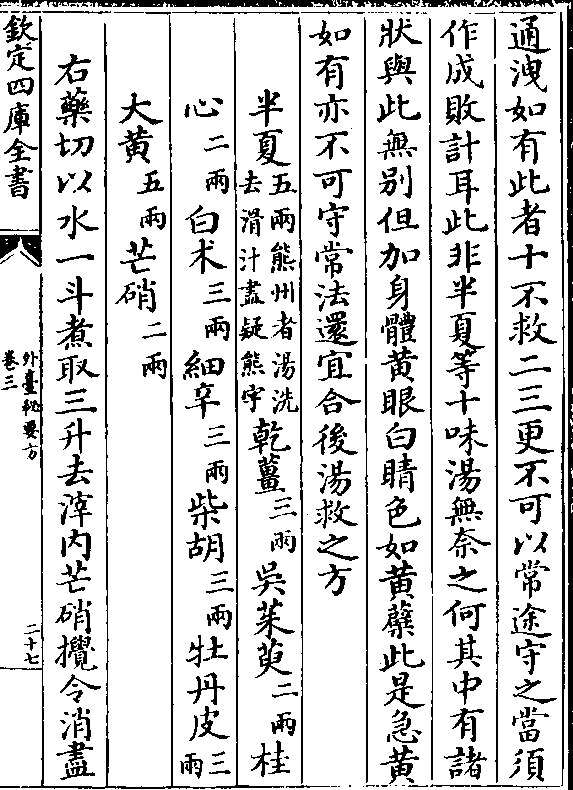 通洩如有此者十不救二三更不可以常途守之當須
作成敗計耳此非半夏等十味湯無奈之何其中有諸
狀與此無别但加身體黄眼白睛色如黄蘗此是急黄
如有亦不可守常法還宜合後湯救之方
半夏五兩熊州者湯洗去滑汁盡疑熊字乾薑三兩吳茱萸二兩桂
心二兩白术三兩細辛三兩柴胡三兩牡丹皮三兩
大黄五兩芒硝二兩
右藥切以水一斗煮取三升去滓内芒硝攪令消盡
欽定四庫全書
外臺秘要方
卷三
二十七